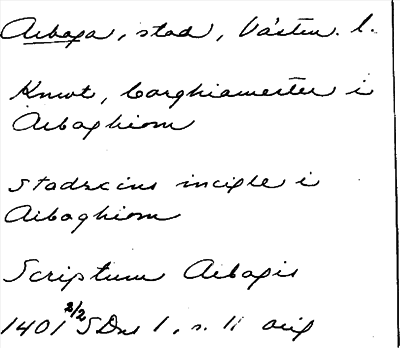 Arboga, stad, Västm. l.
Knwt, borghamester i
Arboghom
Stadzsins incigle i
Arboghom
Scriptum Arbogis
1401 2/2 SDns 1, s. 11 orig